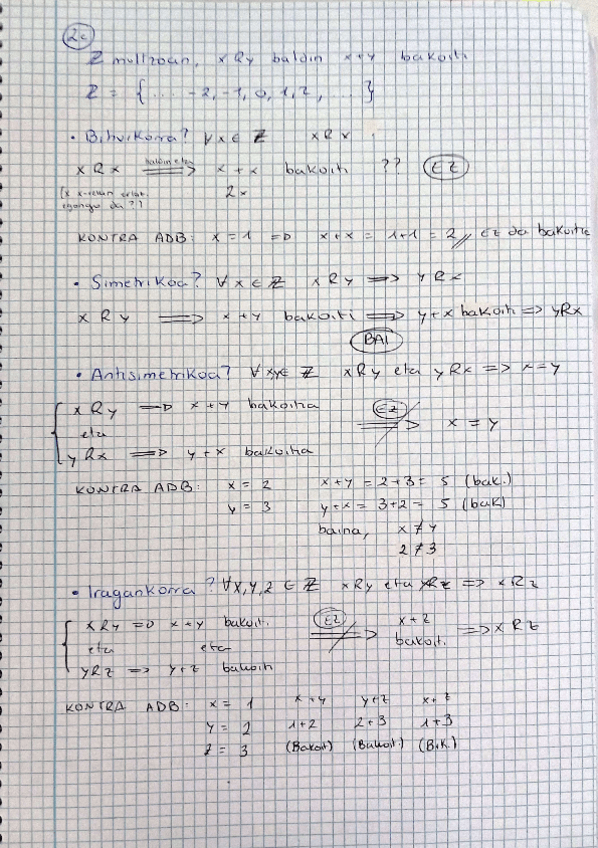 2c
Z multzoan, xRy baldin x+y bakoiti
Z = { ... -2, -1, 0, 1, 2, ... }
• Bihurkorra? ∀x ∈ Z xRx
xRx ⟹ x+x bakoiti ?? EZ
baldin eta
(x x-rekin erlat. 2x
egongo da?)
KONTRA ADB: x = 1 ⟹ x+x = 1+1 = 2 // ez da bakoitia
• Simetrikoa? ∀x ∈ Z xRy ⟹ yRx
xRy ⟹ x+y bakoiti ⟹ y+x bakoiti ⟹ yRx
BAI
• Antisimetrikoa? ∀x,y ∈ Z xRy eta yRx ⟹ x=y
xRy ⟹ x+y bakoitia EZ
eta ⟹ x = y
yRx ⟹ y+x bakoitia
KONTRA ADB: x = 2 x+y = 2+3 = 5 (bak.)
y = 3 y+x = 3+2 = 5 (bak)
baina, x ≠ y
2 ≠ 3
• Iragankorra? ∀x,y,z ∈ Z xRy eta yRz ⟹ xRz
xRy ⟹ x+y bakoit. EZ x+z
eta eta ⟹ bakoit. ⟹ xRz
yRz ⟹ y+z bakoiti
KONTRA ADB: x = 1 x+y y+z x+z
y = 2 1+2 2+3 1+3
z = 3 (Bakoit) (Bakoit.) (Bik.)